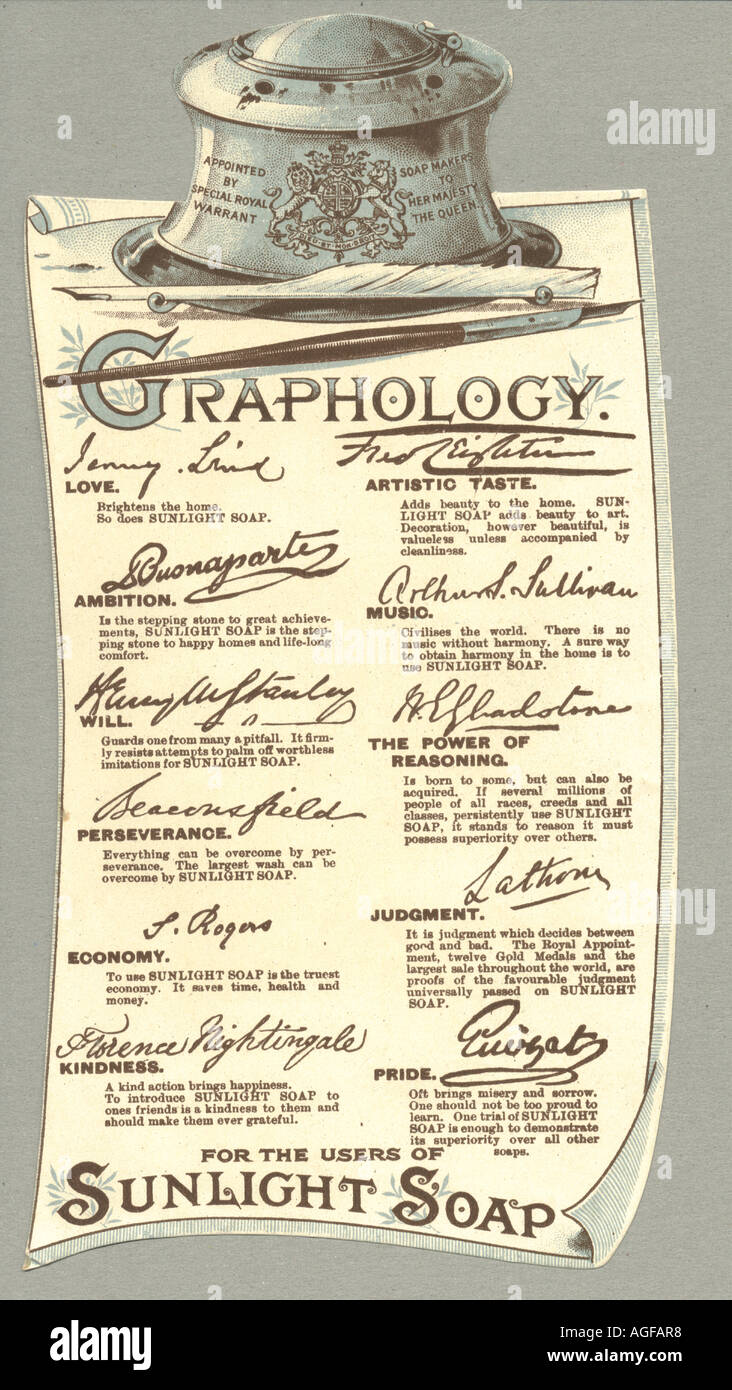 APPOINTED
BY
SPECIAL ROYAL
WARRANT
SOAP MAKERS
TO
HER MAJESTY
THE QUEEN.
GRAPHOLOGY.
Jenny Lind
LOVE.
Brightens the home.
So does SUNLIGHT SOAP.
Buonaparte
AMBITION.
Is the stepping stone to great achieve-
ments, SUNLIGHT SOAP is the step-
ping stone to happy homes and life-long
comfort.
Henry M Stanley
WILL.
Guards one from many a pitfall. It firm-
ly resists attempts to palm off worthless
imitations for SUNLIGHT SOAP.
Beaconsfield
PERSEVERANCE.
Everything can be overcome by per-
severance. The largest wash can be
overcome by SUNLIGHT SOAP.
S. Rogers
ECONOMY.
To use SUNLIGHT SOAP is the truest
economy. It saves time, health and
money.
Florence Nightingale
KINDNESS.
A kind action brings happiness.
To introduce SUNLIGHT SOAP to
ones friends is a kindness to them and
should make them ever grateful.
Fred Leighton
ARTISTIC TASTE.
Adds beauty to the home. SUN-
LIGHT SOAP adds beauty to art.
Decoration, however beautiful, is
valueless unless accompanied by
cleanliness.
Arthur S. Sullivan
MUSIC.
Civilises the world. There is no
music without harmony. A sure way
to obtain harmony in the home is to
use SUNLIGHT SOAP.
W.E. Gladstone
THE POWER OF
REASONING.
Is born to some, but can also be
acquired. If several millions of
people of all races, creeds and all
classes, persistently use SUNLIGHT
SOAP, it stands to reason it must
possess superiority over others.
JUDGMENT.
It is judgment which decides between
good and bad. The Royal Appoint-
ment, twelve Gold Medals and the
largest sale throughout the world, are
proofs of the favourable judgment
universally passed on SUNLIGHT
SOAP.
PRIDE.
Oft brings misery and sorrow.
One should not be too proud to
learn. One trial of SUNLIGHT
SOAP is enough to demonstrate
its superiority over all other
soaps.
FOR THE USERS OF
SUNLIGHT SOAP
alamy
Image ID: AGFAR8
www.alamy.com